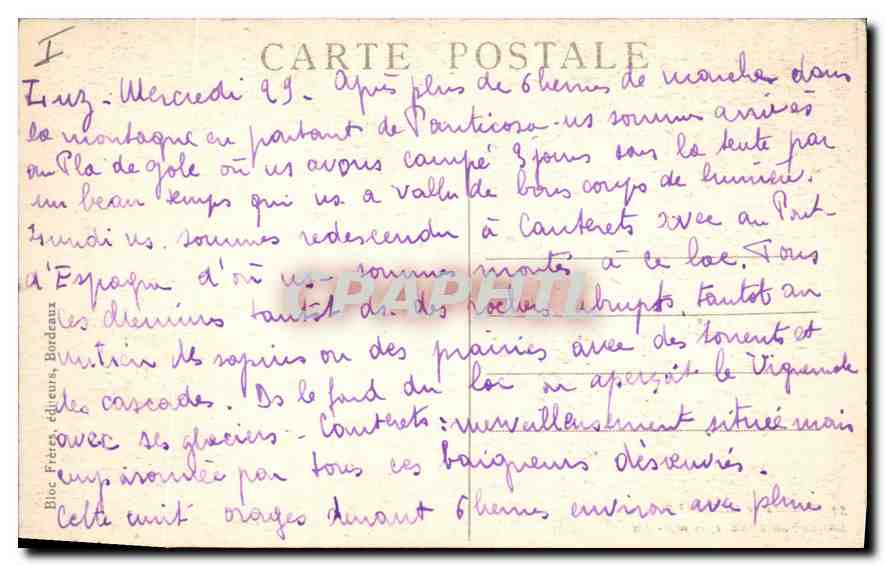 I
CARTE POSTALE
Luz - Mercredi 29 - Après plus de 6 heures de marche dans
la montagne en partant de Panticosa - ns sommes arrivés
au Pla de gole où ns avons campé 3 jours sous la tente par
un beau temps qui ns a vallu de bons coups de lumière.
Lundi ns. sommes redescendu à Cauterets avec au Pont-
d'Espagne d'où ns sommes montés à ce lac. Tous
ces chemins tantôt ds. des rochers abrupts, tantôt au
milieu des sapins ou des prairies avec des torrents et
des cascades. Ds le fond du lac on aperçoit le Vignemale
avec ses glaciers - Cauterets : merveilleusement située mais
empoisonnée par tous ces baigneurs désœuvrés.
Cette nuit orages durant 6 heures environ avec pluie
Bloc Frères, éditeurs, Bordeaux
CPAPHIL